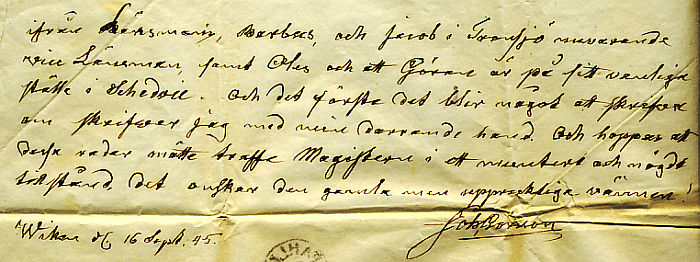 ifrån Länsman, Barbus, och Jacob i Transjö nuvarande
vice Länsman, samt Oles och att Göran är på sitt vanliga
ställe i Schedvie. och det förste det blir något att skrifva
om skrifver jag med min darrande hand. Och hoppas att
dessa rader måtte träffa Magistern i ett muntert och nögdt
tilstånd, det önskar den gamla men uppricktiga vännen.
Joh Görsson
Wiken d. 16 Sept. 45.